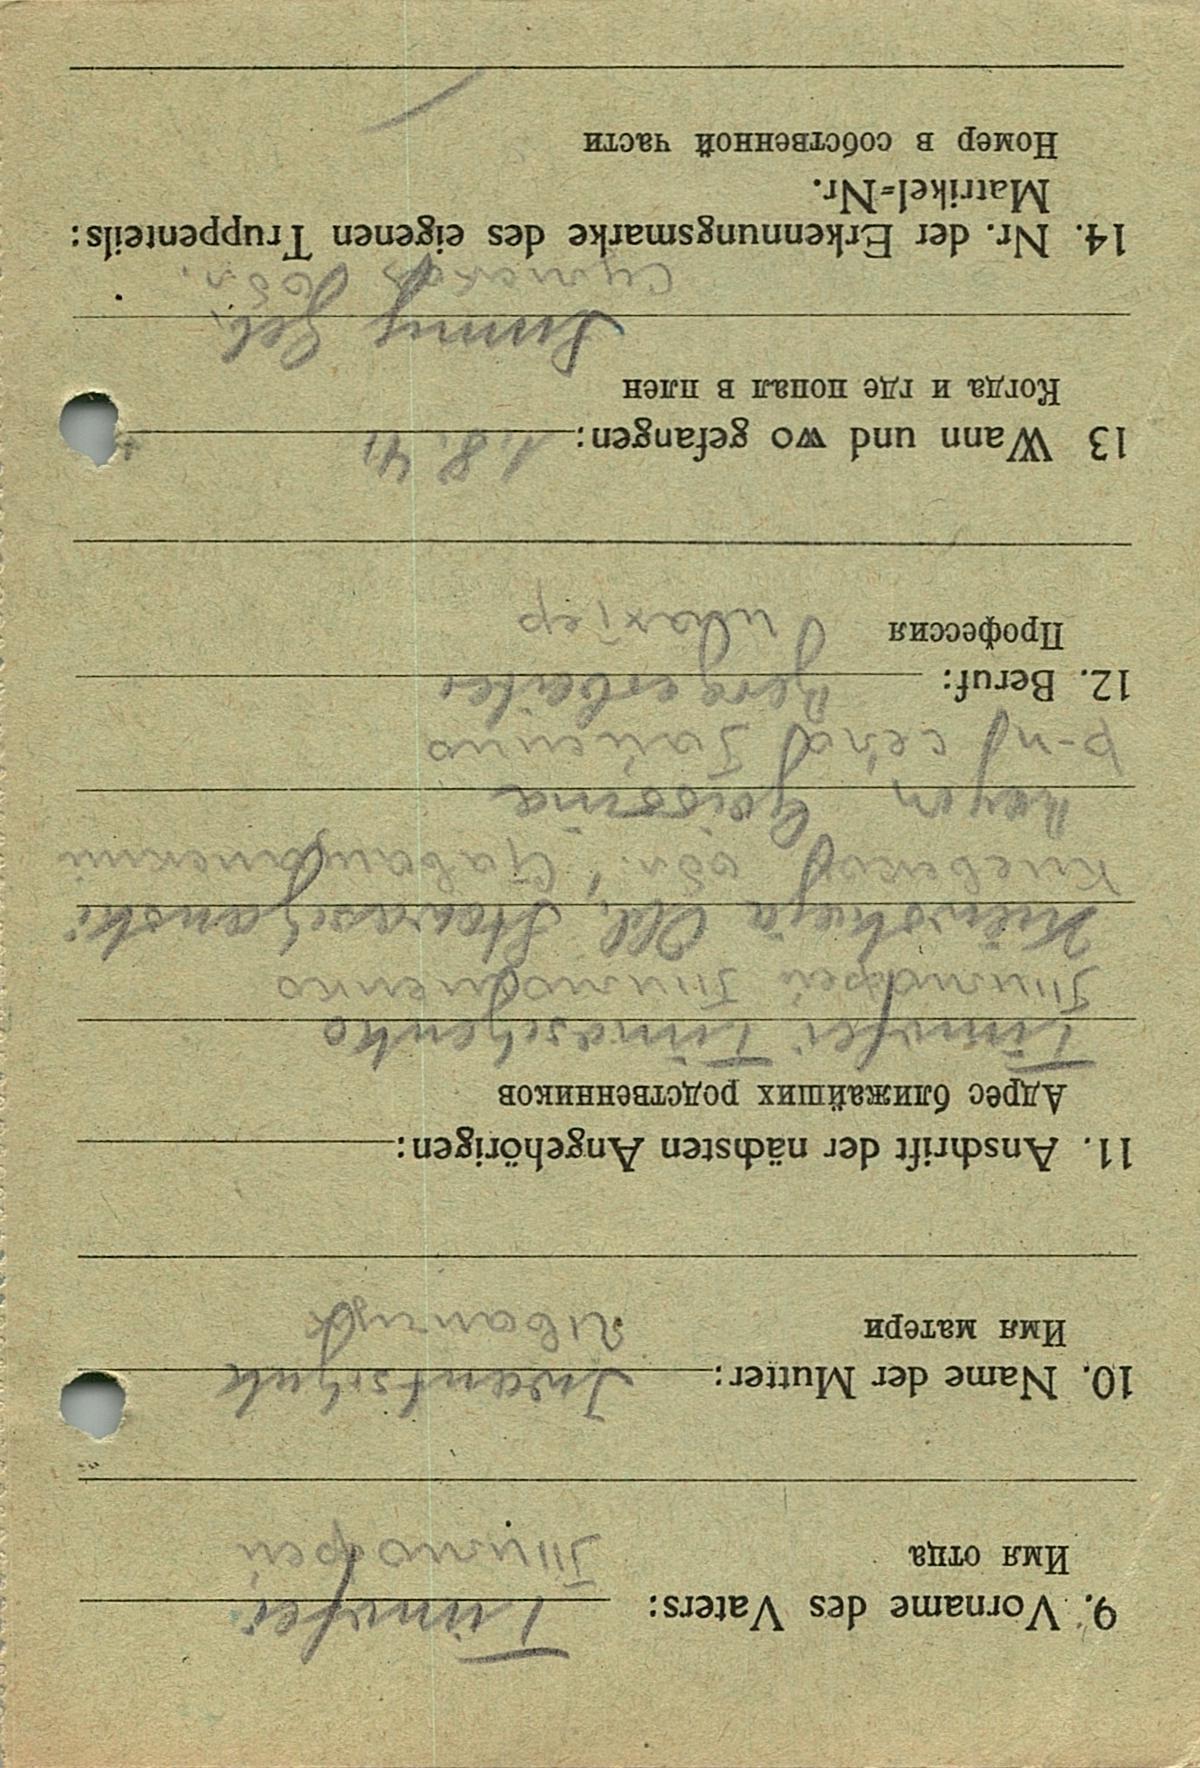 9. Vorname des Vaters: Timofei
Имя отца Тимофей
10. Name der Mutter: Iwantschuk
Имя матери Иванчук
11. Anschrift der nächsten Angehörigen:
Адрес ближайших родственников
Timofei Timoschenko
Тимофей Тимошенко
Kiewskaja Obl, Stawischanski
Киевской обл., Ставищанский
Rayon
р-н село
12. Beruf: Bergarbeiter
Профессия
13 Wann und wo gefangen: 1.8.41
Когда и где попал в плен
Sumy Geb.
Сумская обл.
14. Nr. der Erkennungsmarke des eigenen Truppenteils:
Matrikel=Nr.
Номер в собственной части